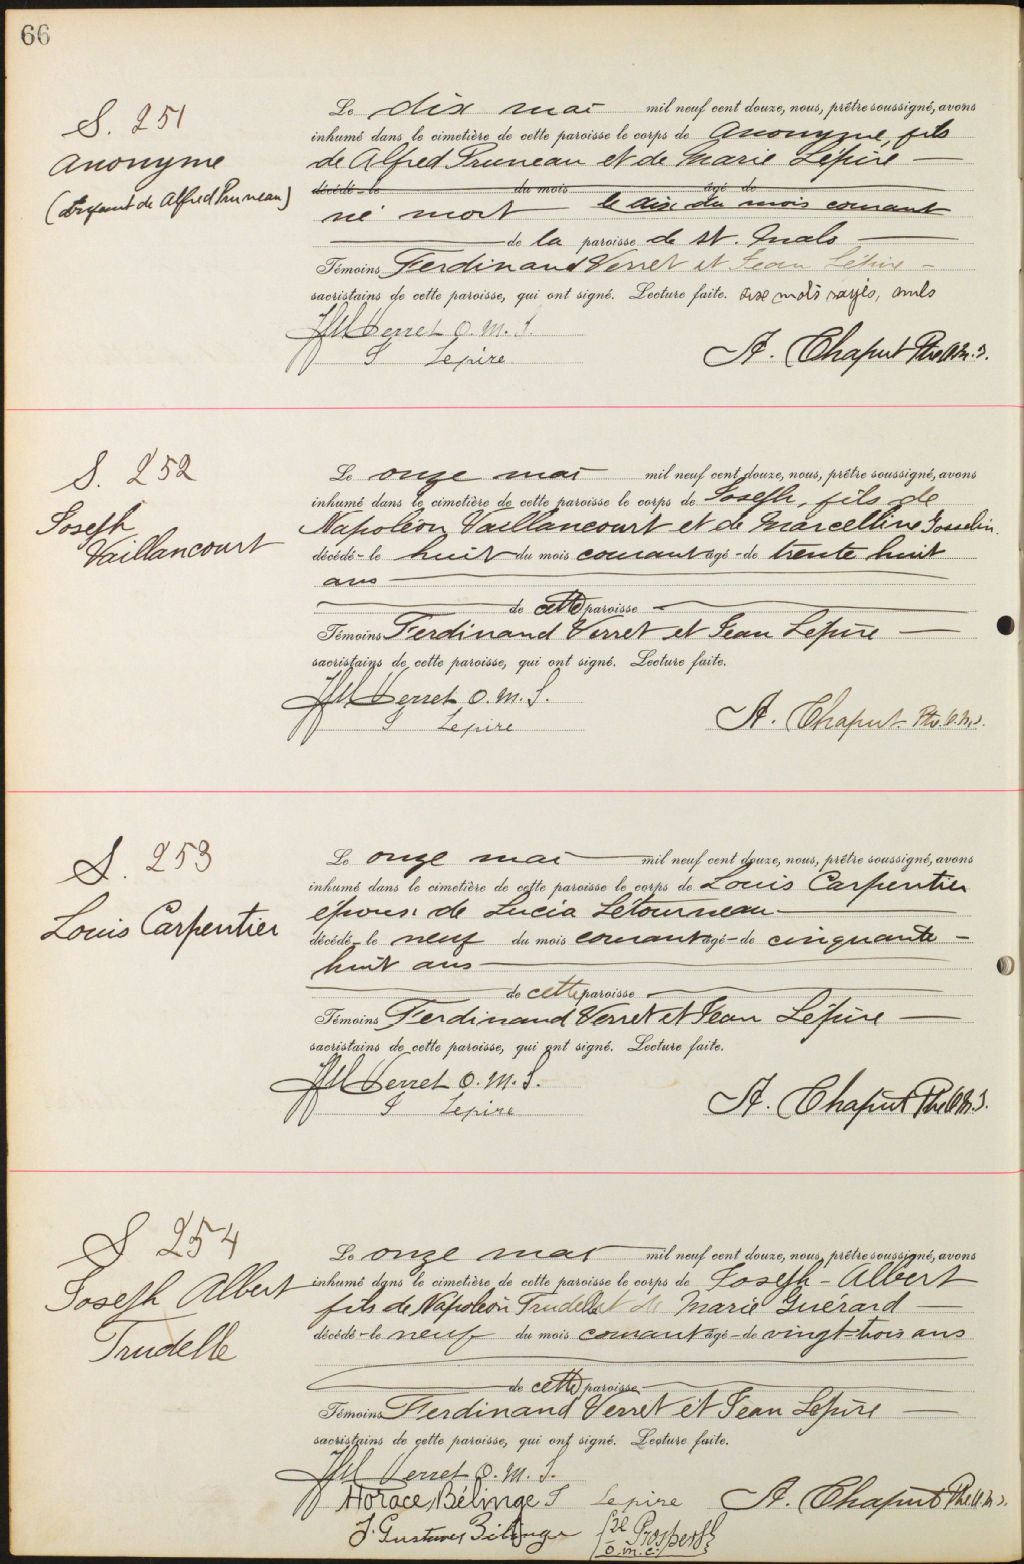 66
S. 251
Anonyme
(Enfant de Alfred Pruneau)
Le dix mai mil neuf cent douze, nous, prêtre soussigné, avons
inhumé dans le cimetière de cette paroisse le corps de Anonyme, fils
de Alfred Pruneau et de Marie Lépire —
décédé-le du mois âgé-de
né mort le dix du mois courant
de la paroisse de St. Malo —
Témoins Ferdinand Verret et Jean Lépire —
sacristains de cette paroisse, qui ont signé. Lecture faite. mots rayés, nuls
Verret O.M.S.
J Lepire
A. Chaput Ptre O.M.I.
S. 252
Joseph
Vaillancourt
Le onze mai mil neuf cent douze, nous, prêtre soussigné, avons
inhumé dans le cimetière de cette paroisse le corps de Joseph, fils de
Napoléon Vaillancourt et de Marcelline Gosselin.
décédé-le huit du mois courant âgé-de trente huit
ans —
de cette paroisse —
Témoins Ferdinand Verret et Jean Lépire —
sacristains de cette paroisse, qui ont signé. Lecture faite.
Verret O.M.S.
J Lepire
A. Chaput Ptr. O.M.I.
S. 253
Louis Carpentier
Le onze mai mil neuf cent douze, nous, prêtre soussigné, avons
inhumé dans le cimetière de cette paroisse le corps de Louis Carpentier
époux de Lucia Létourneau —
décédé-le neuf du mois courant âgé-de cinquante —
huit ans —
de cette paroisse —
Témoins Ferdinand Verret et Jean Lépire —
sacristains de cette paroisse, qui ont signé. Lecture faite.
Verret O.M.S.
J Lepire
A. Chaput Ptre O.M.I.
S 254
Joseph Albert
Trudelle
Le onze mai mil neuf cent douze, nous, prêtre soussigné, avons
inhumé dans le cimetière de cette paroisse le corps de Joseph-Albert
fils de Napoléon Trudelle et de Marie Guérard —
décédé-le neuf du mois courant âgé-de vingt-trois ans
de cette paroisse —
Témoins Ferdinand Verret et Jean Lépire —
sacristains de cette paroisse, qui ont signé. Lecture faite.
Verret O.M.S.
Horace Bélinge J Lepire A. Chaput Ptre O.M.I.
J. Gustave Bélinger Prosper
o.m.c.